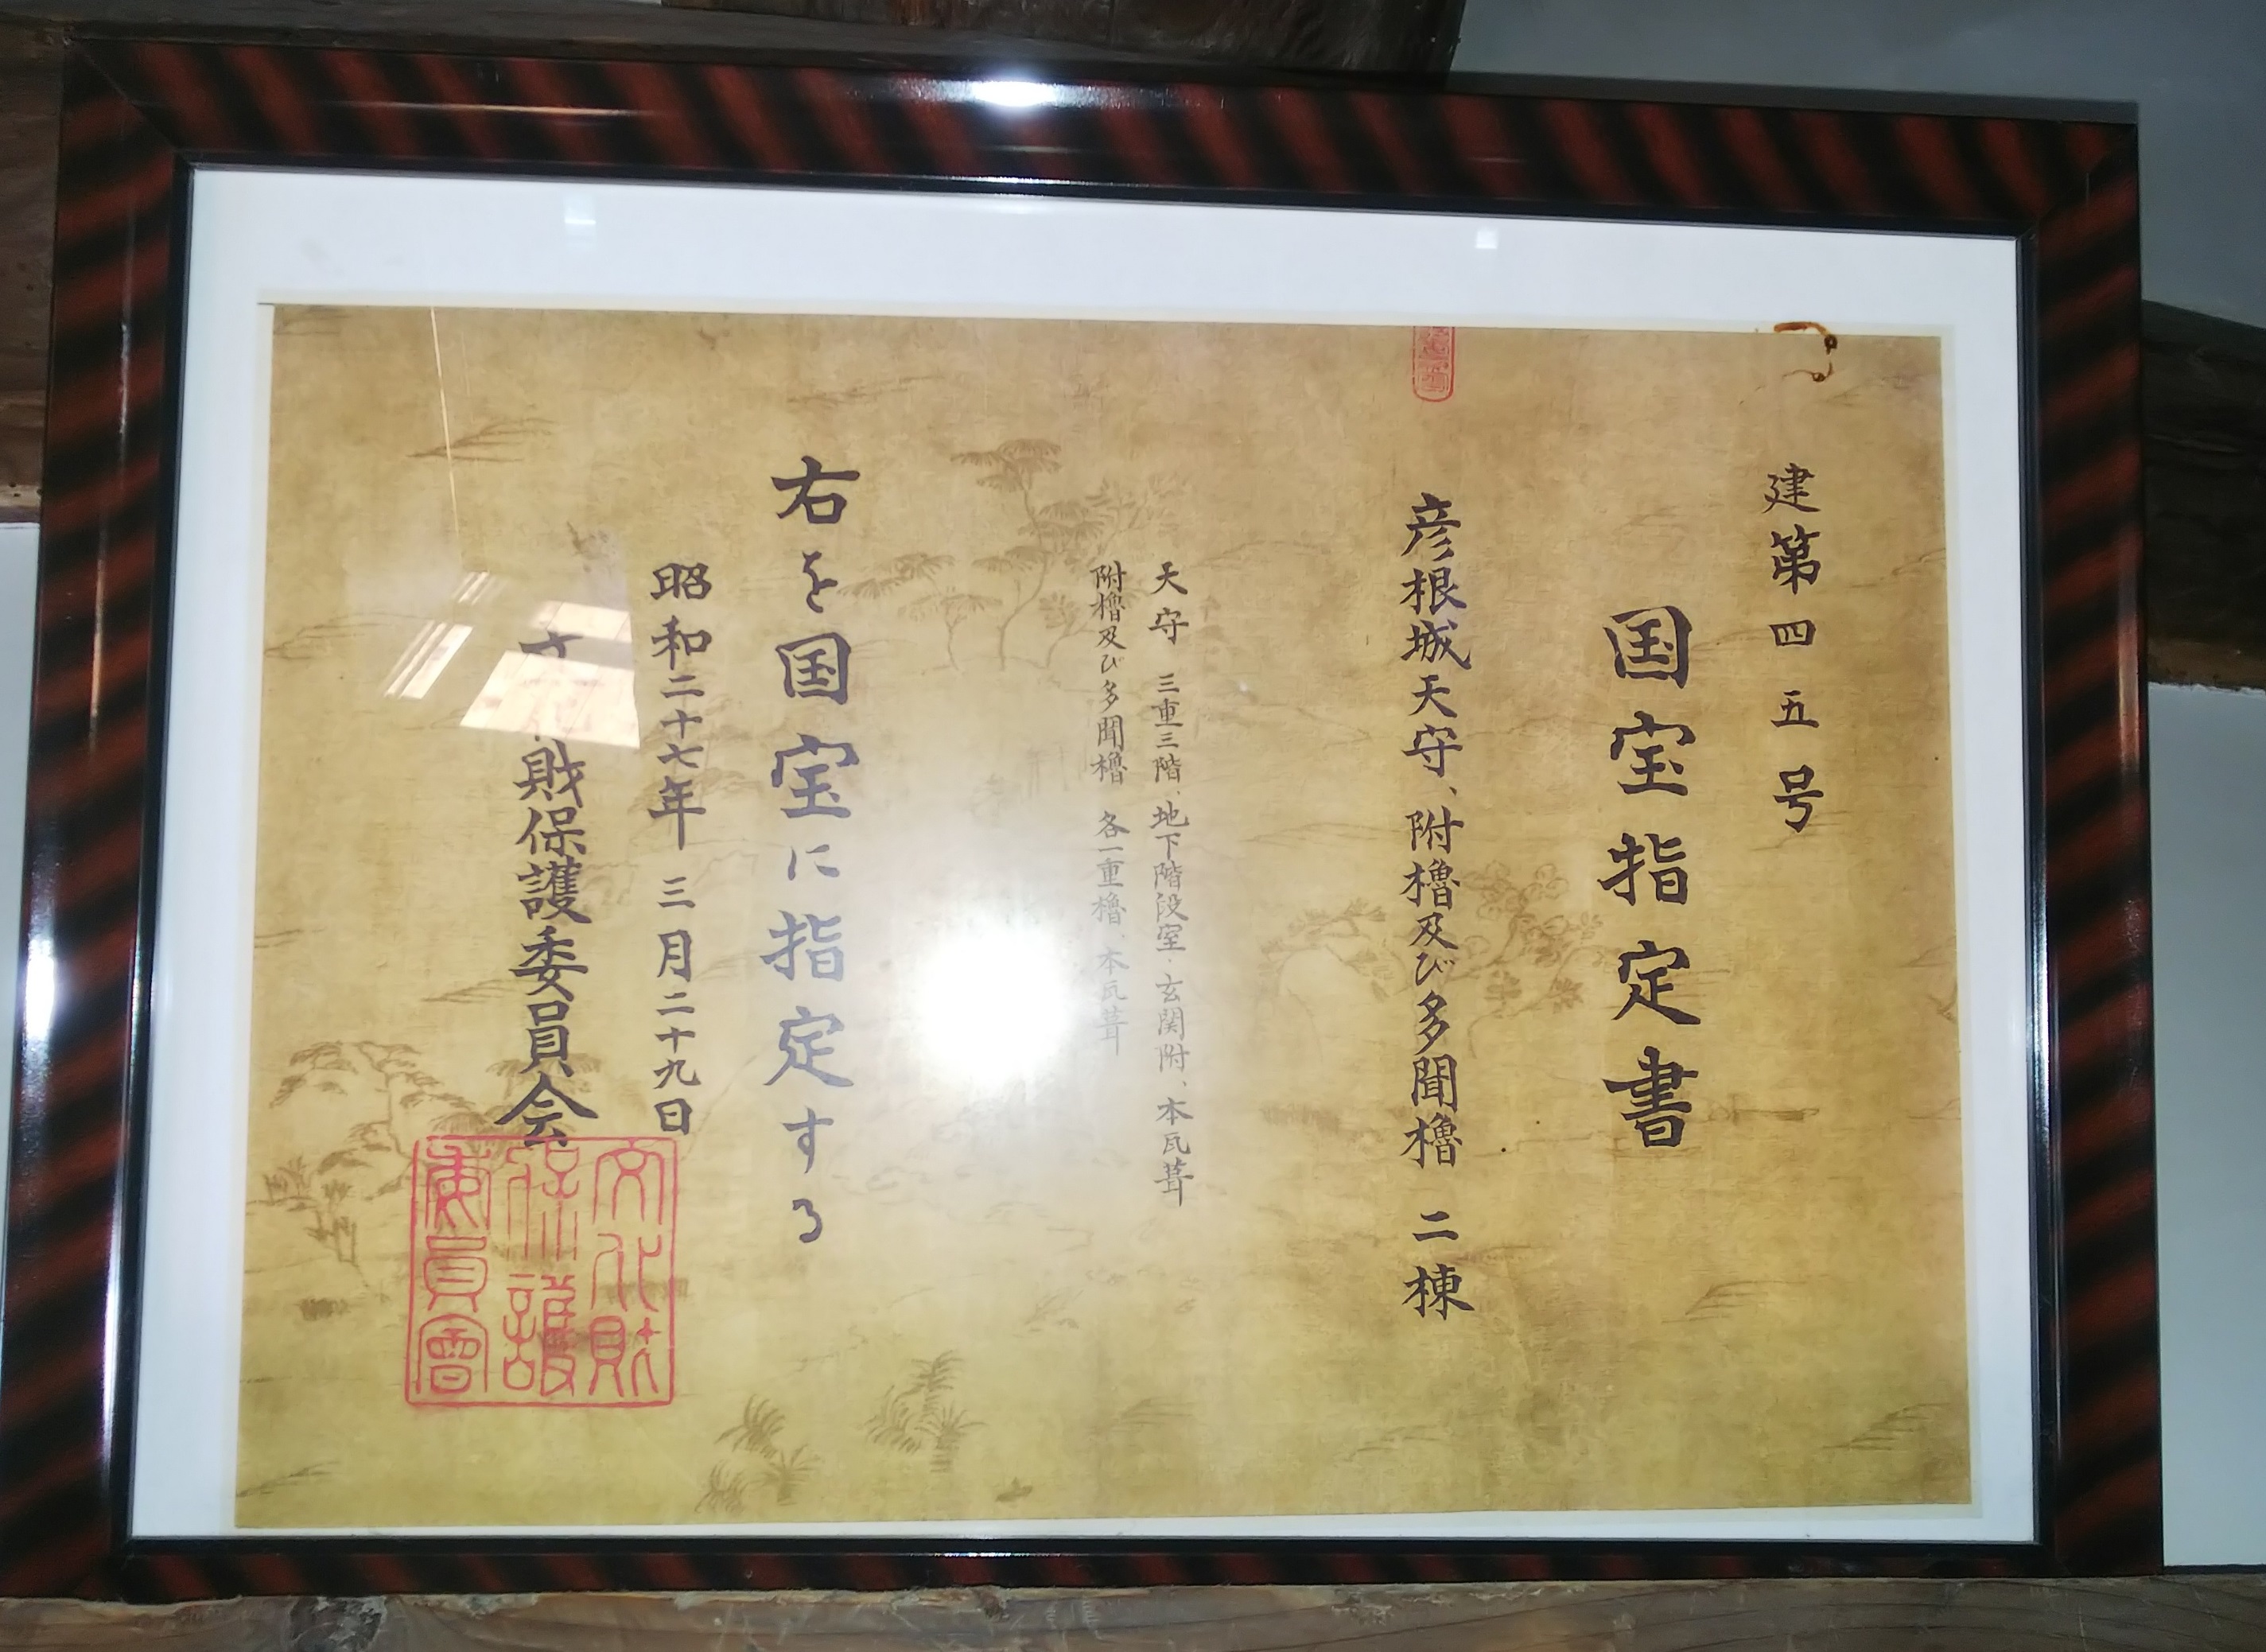 建第四五号
国宝指定書
彦根城天守、附櫓及び多聞櫓 二棟
天守 三重三階、地下階段室、玄関附、本瓦葺
附櫓及び多聞櫓 各一重櫓、本瓦葺
右を国宝に指定する
昭和二十七年三月二十九日
財保護委員会
文化財
保護
委員會